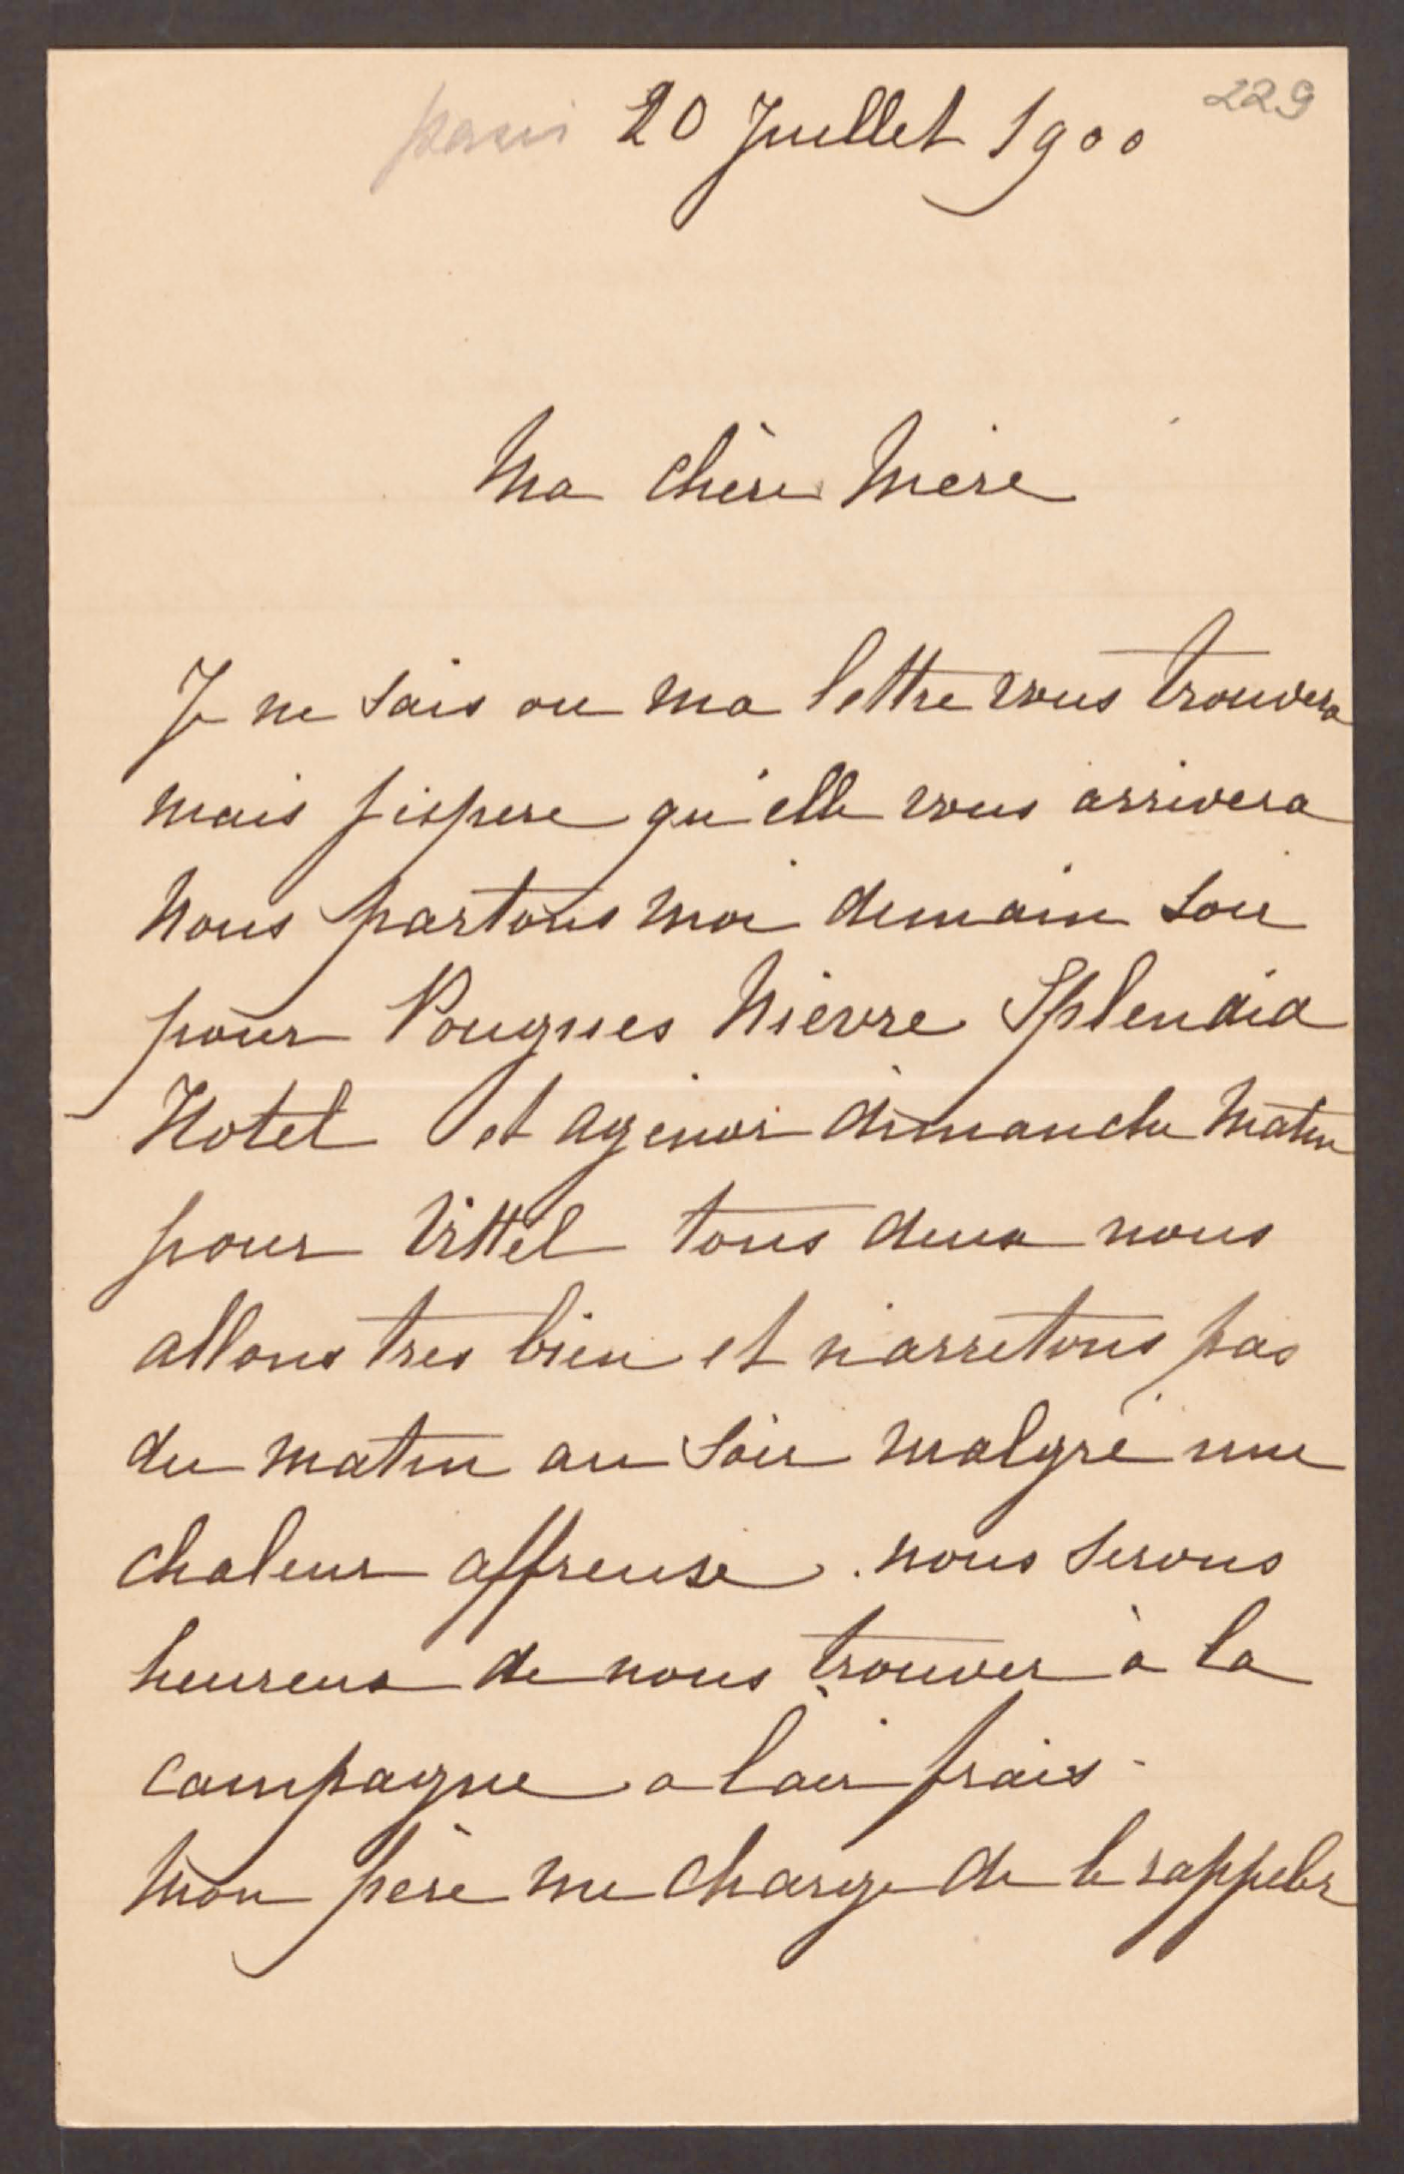 229
paris 20 Juillet 1900
Ma chère Mère
Je ne sais ou ma lettre vous trouvera
mais j'espere qu'elle vous arrivera
Nous partons moi demain soir
pour Pougues Nievre Splendid
Hotel et Agenor dimanche matin
pour Vittel tous deux nous
allons tres bien et n'arretons pas
du matin au soir malgré une
chaleur affreuse. nous serons
heureux de nous trouver à la
campagne a l'air frais.
Mon père me charge de le rappeler